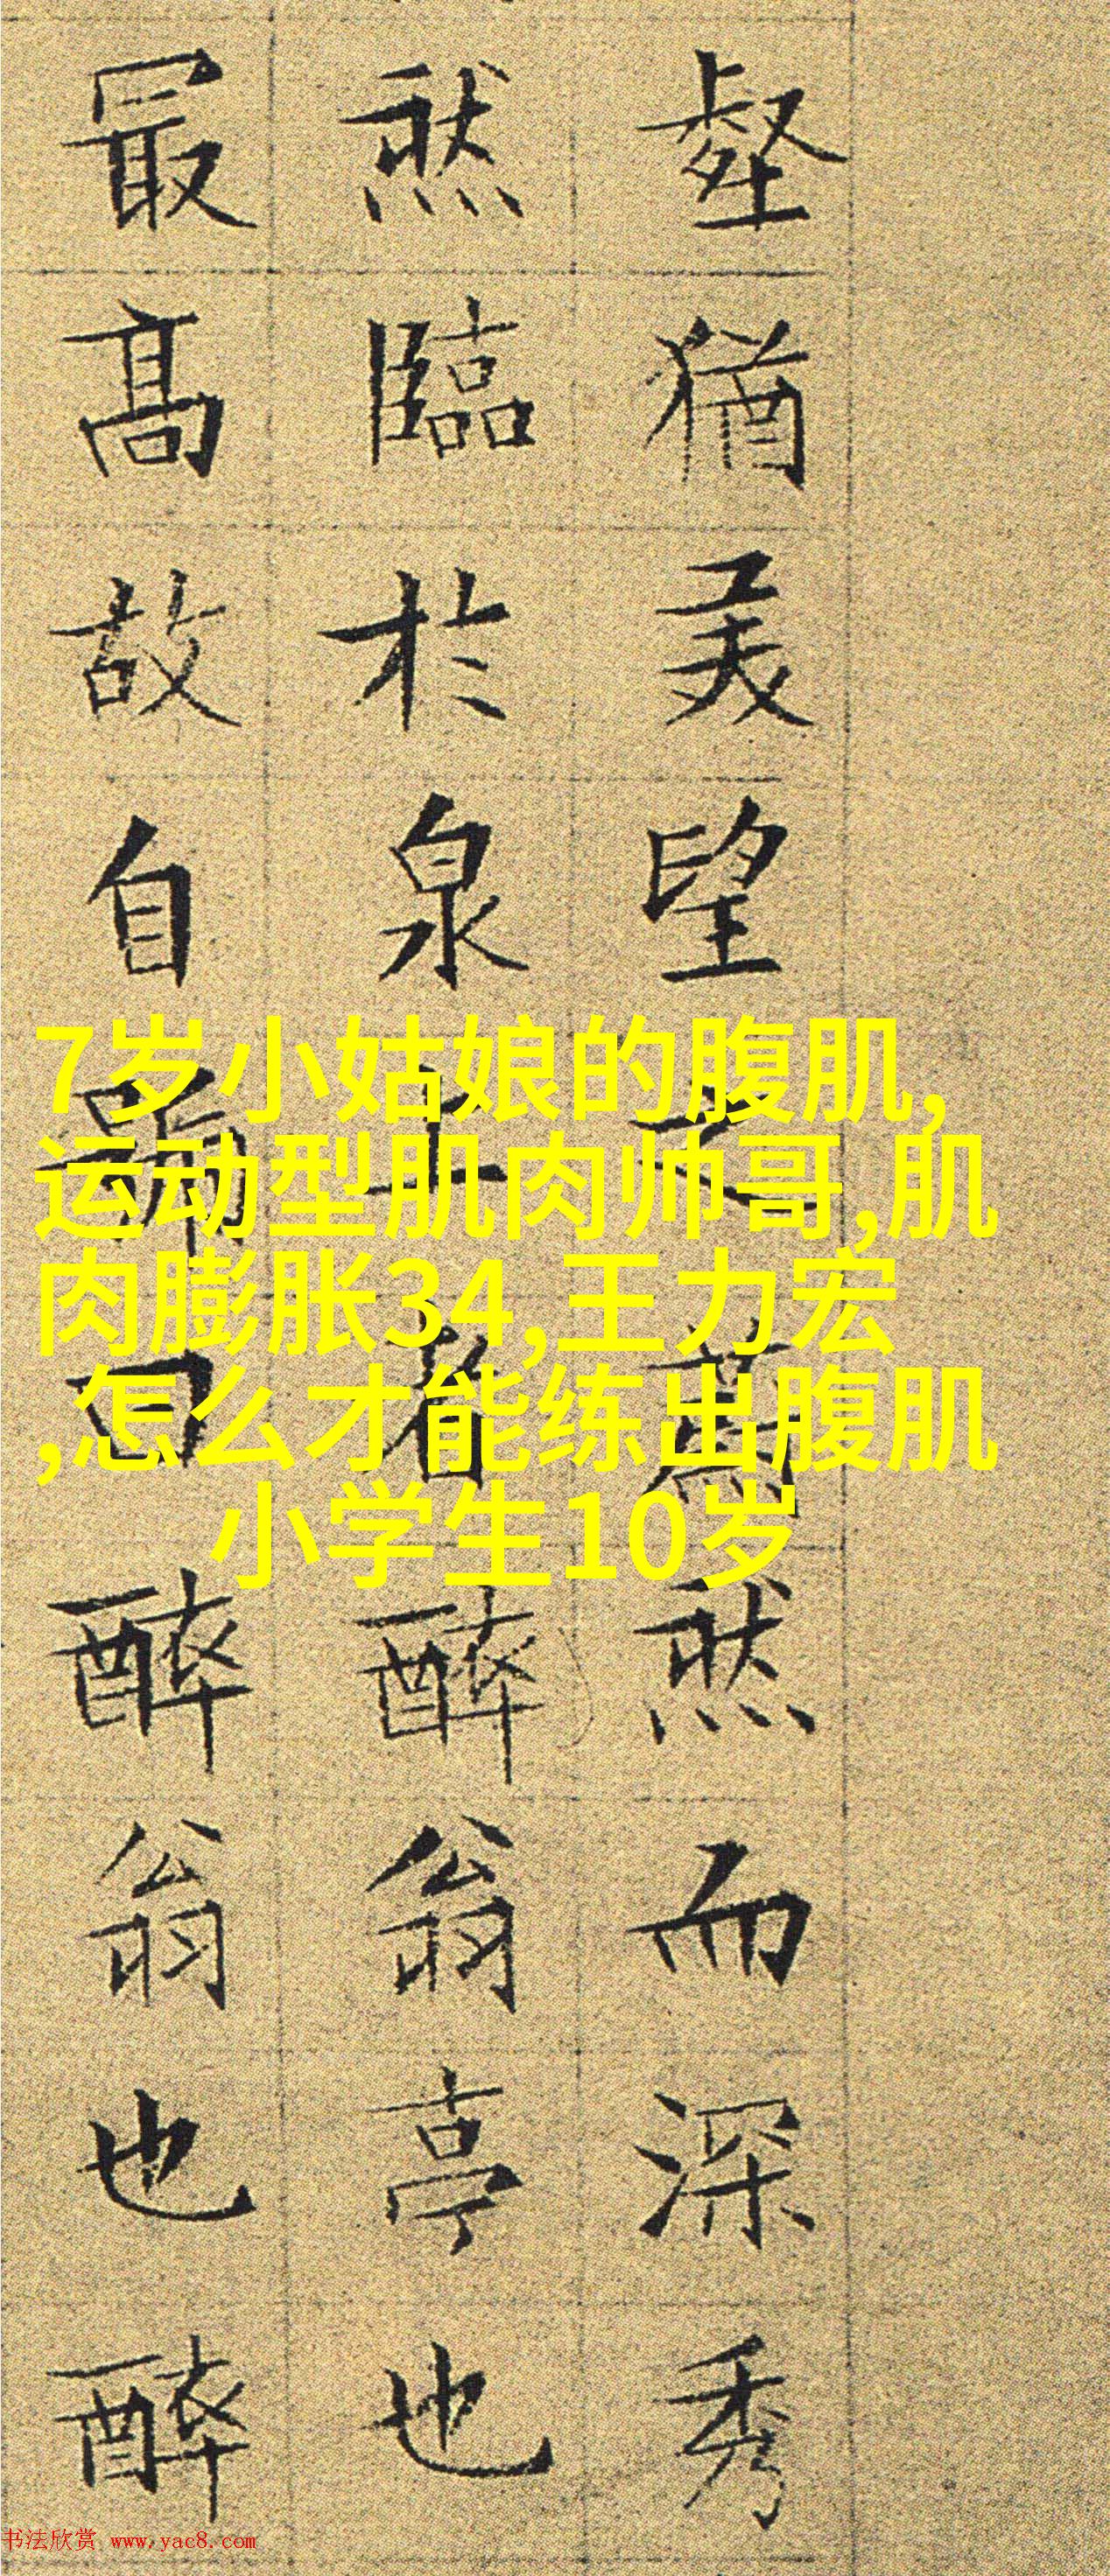 壑猶美望之然而深秀
然臨於泉上者醉翁亭也
最高故自號曰醉翁也醉
7岁小姑娘的腹肌,
运动型肌肉帅哥,肌
肉膨胀34,王力宏
,怎么才能练出腹肌
小学生10岁
书法欣赏 www.yac8.com